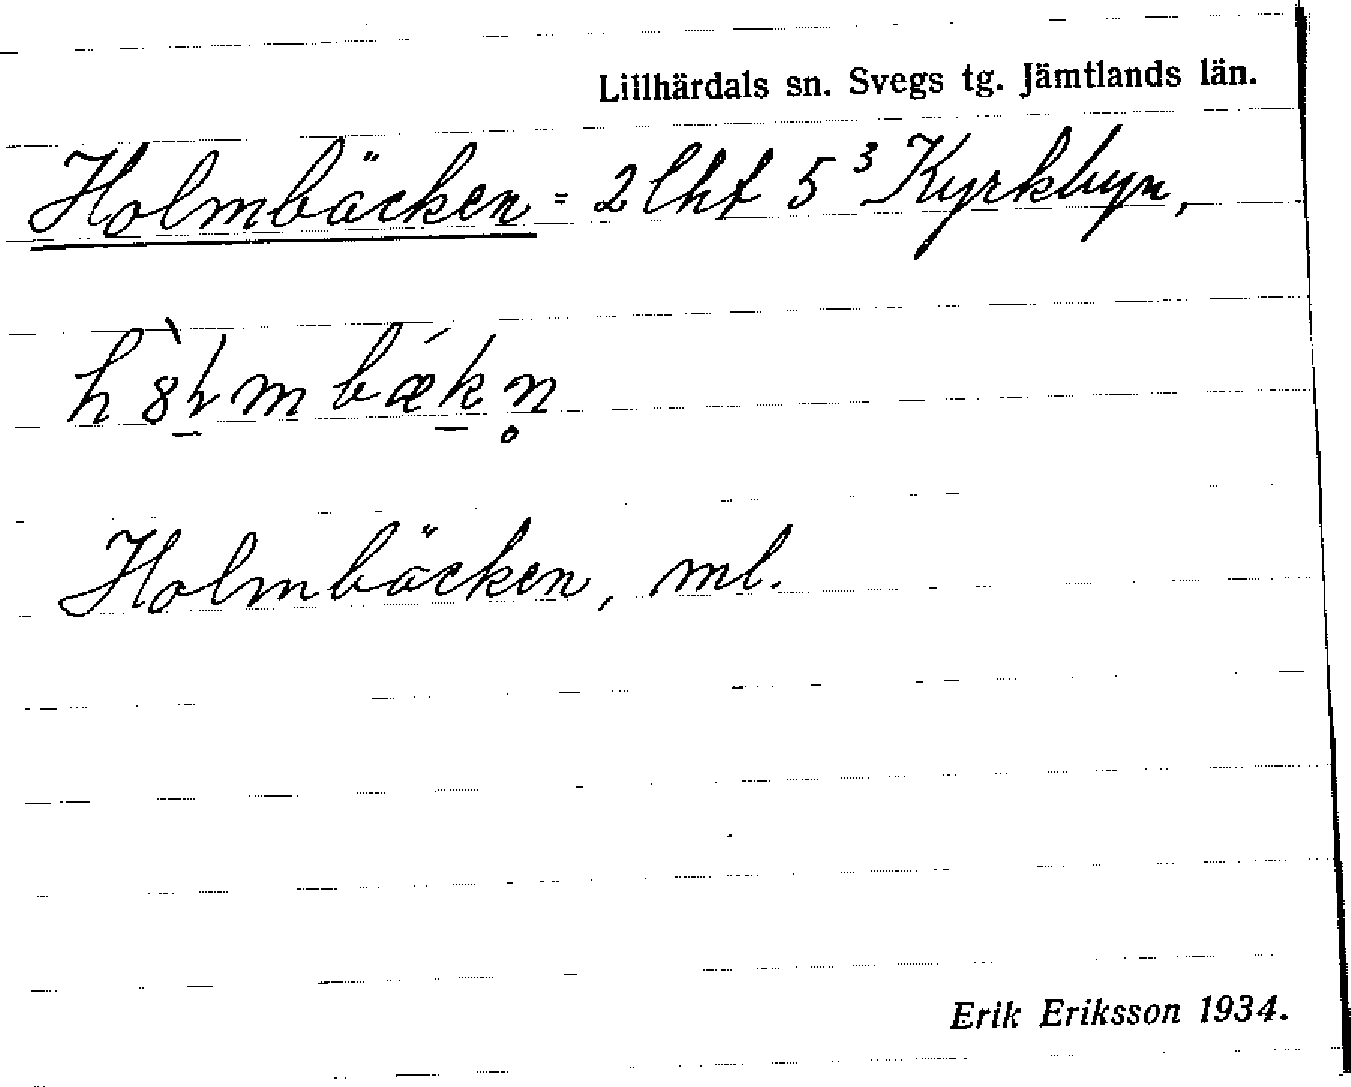 Lillhärdals sn. Svegs tg. Jämtlands län.
Holmbäcken = 2 lht 5³ Kyrkbyn,
Holmbäcken, ml.
Erik Eriksson 1934.